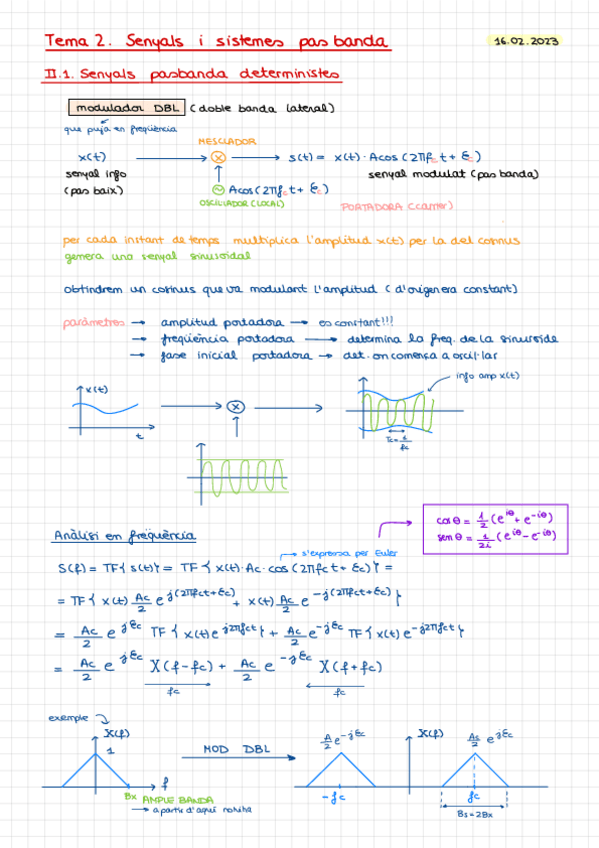 Tema 2. Senyals i sistemes pas banda
16.02.2023
II.1. Senyals pasbanda deterministes
modulador DBL (doble banda lateral)
que puja en freqüència
MESCLADOR
x(t) s(t) = x(t)·Acos(2πfct + ξc)
senyal info senyal modulat (pas banda)
(pas baix) Acos(2πfct + ξc)
OSCIL·LADOR (LOCAL) PORTADORA (carrier)
per cada instant de temps multiplica l'amplitud x(t) per la del cosinus
genera una senyal sinusoidal
obtindrem un cosinus que va modulant l'amplitud (d'origen era constant)
paràmetres → amplitud portadora → es constant!!!
→ freqüència portadora → determina la freq. de la sinusoide
→ fase inicial portadora → det. on comença a oscil·lar
info amp x(t)
x(t)
t
Tc = 1/fc
cosθ = 1/2 (e^iθ + e^-iθ)
senθ = 1/2i (e^iθ - e^-iθ)
Anàlisi en freqüència
s'expressa per Euler
S(f) = TF{s(t)} = TF{x(t)·Ac·cos(2πfct + ξc)} =
= TF{x(t) Ac/2 e^j(2πfct+ξc) + x(t) Ac/2 e^-j(2πfct+ξc)}
= Ac/2 e^jξc TF{x(t)e^j2πfct} + Ac/2 e^-jξc TF{x(t)e^-j2πfct}
= Ac/2 e^jξc X(f-fc) + Ac/2 e^-jξc X(f+fc)
fc fc
exemple
X(f) MOD DBL A/2 e^-jξc X(f) Ac/2 e^jξc
1
f
Bx AMPLE BANDA -fc fc
→ a partir d'aquí no hi ha B1=2Bx